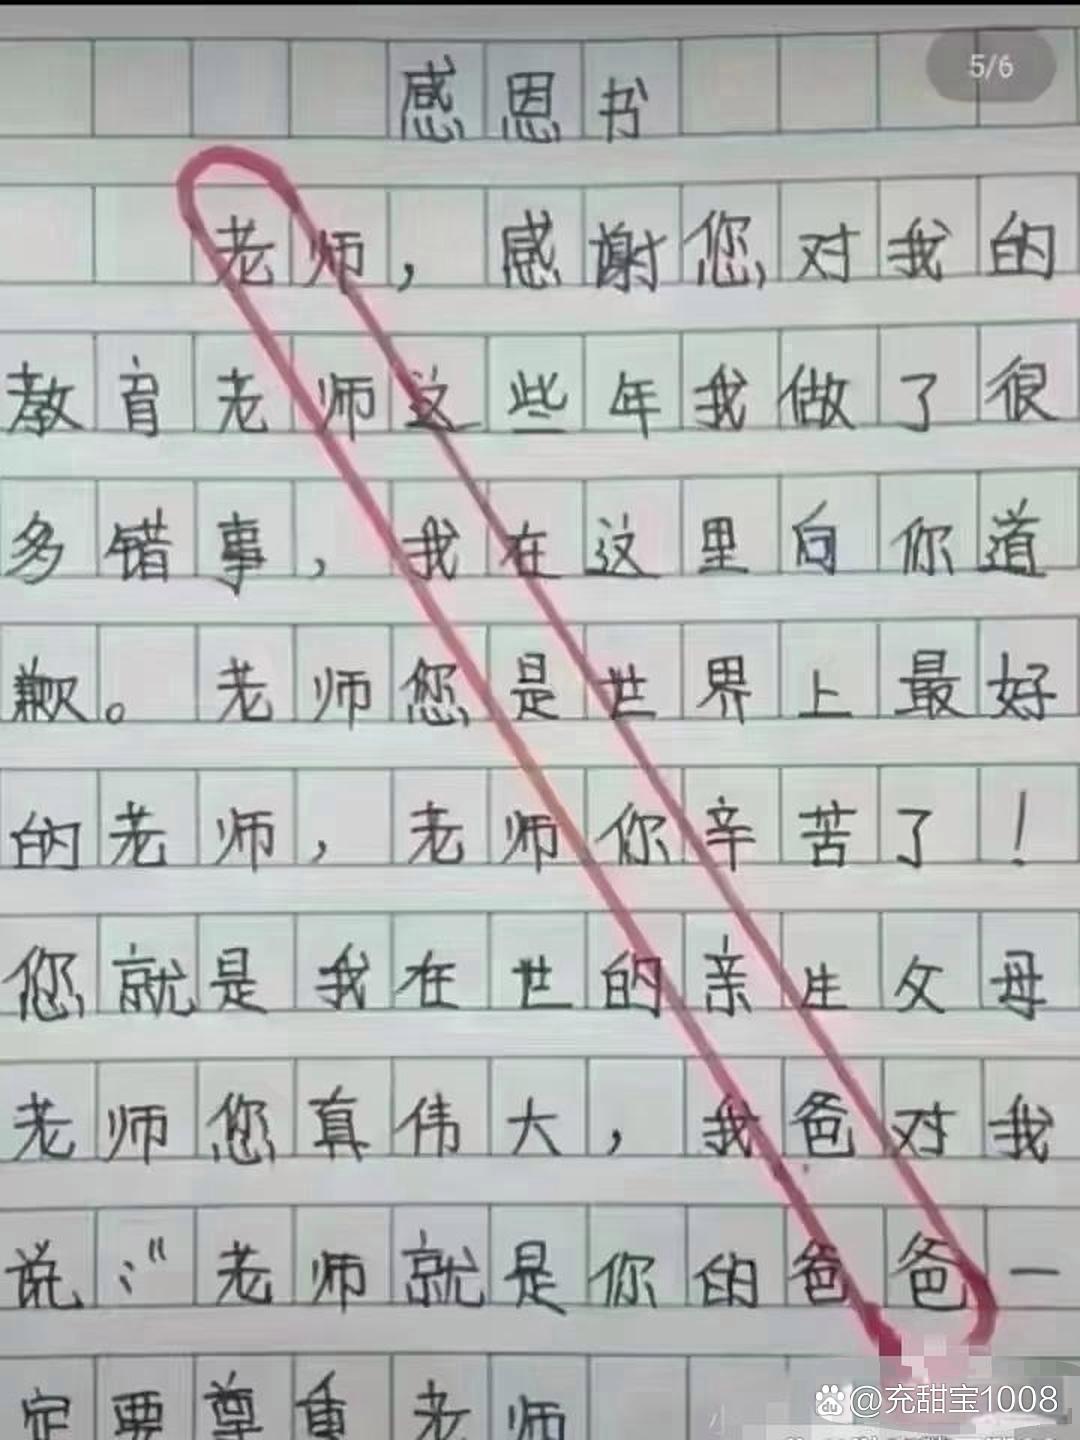 5/6
感恩书
老师，感谢您对我的
教育老师这些年我做了很
多错事，我在这里向你道
歉。老师您是世界上最好
的老师，老师你辛苦了！
您就是我在世的亲生父母
老师您真伟大，我爸对我
说："老师就是你的爸爸一
定要尊重老师
@充甜宝1008